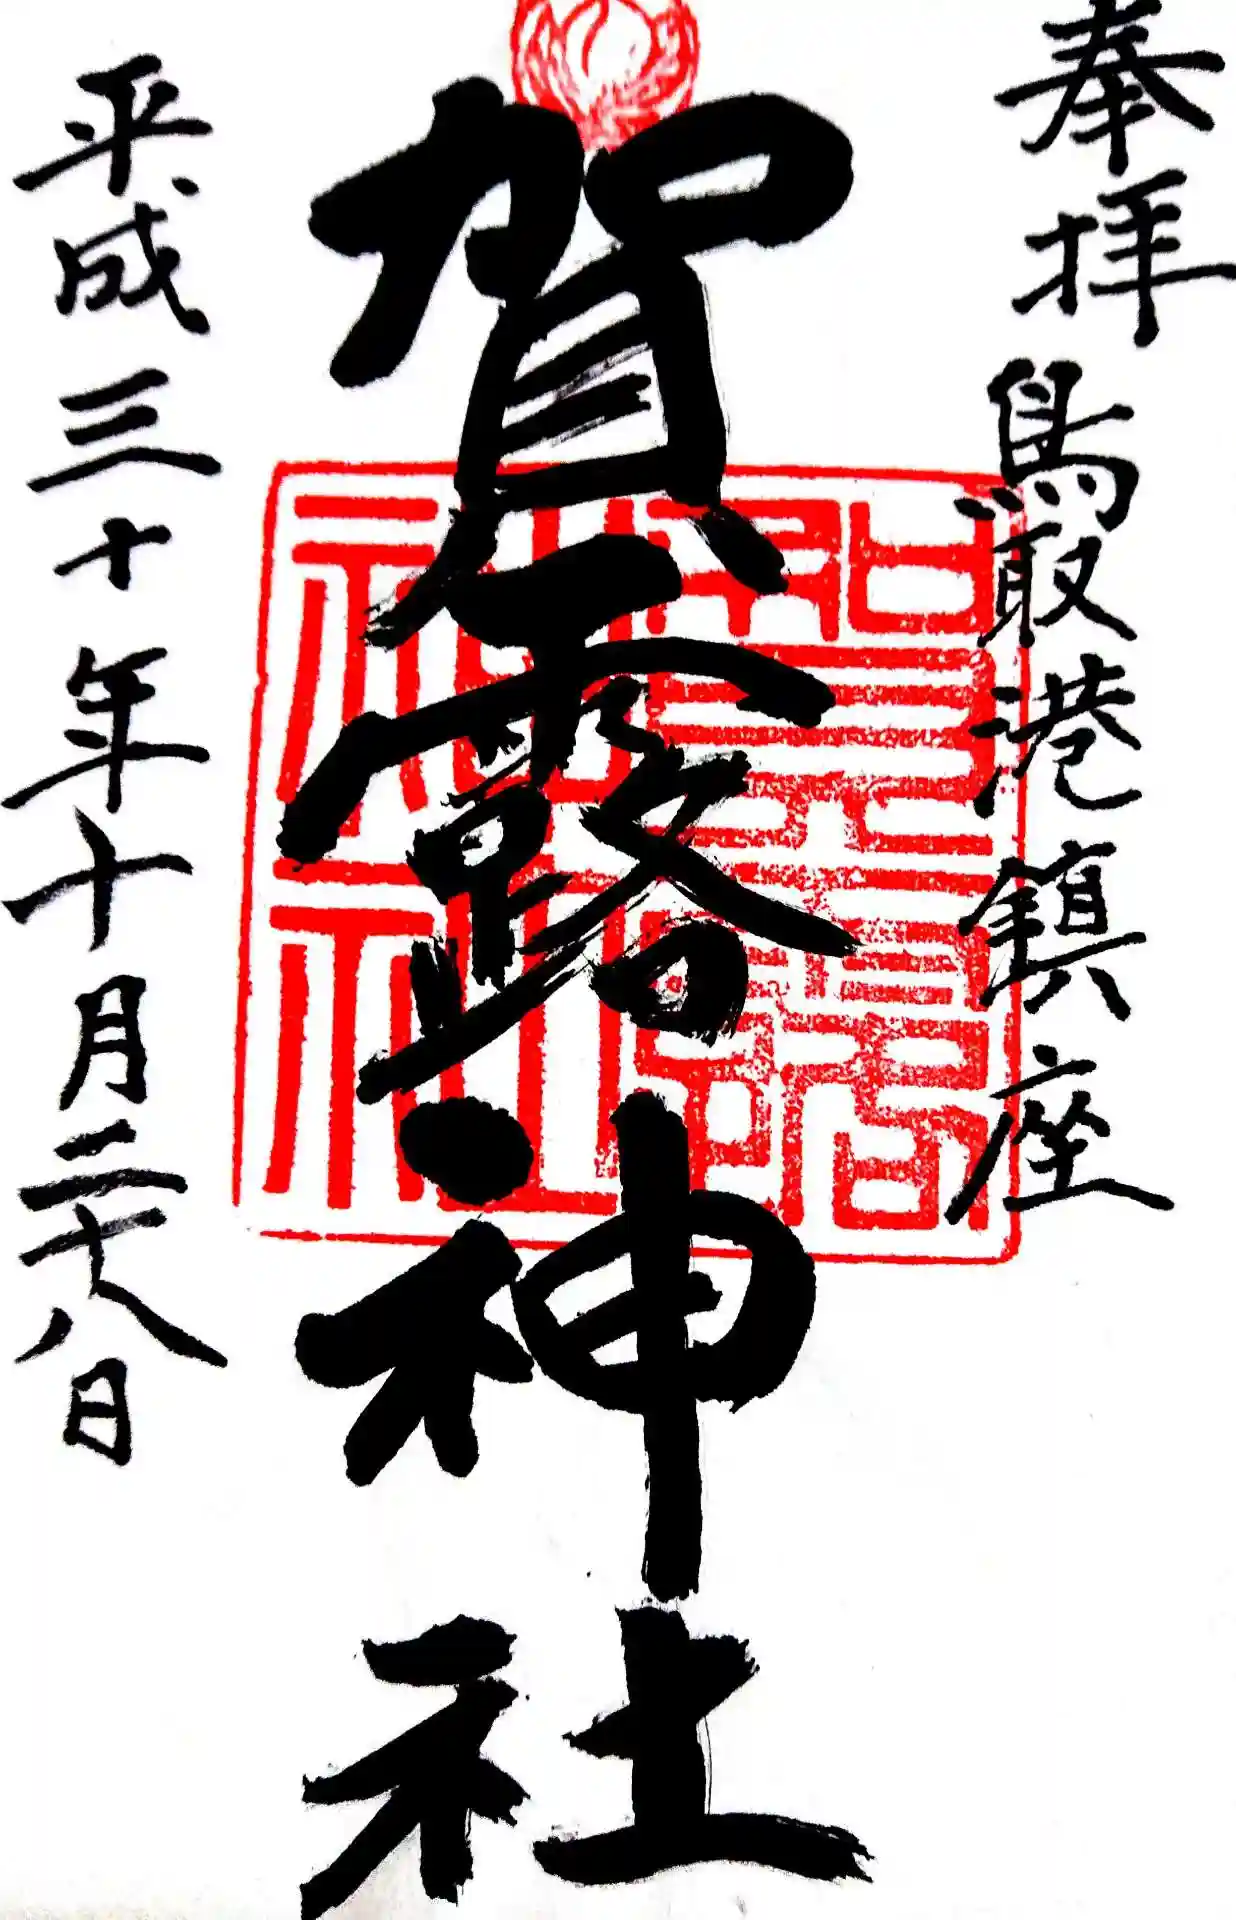 奉拝 鳥取港鎮座
賀露神社
平成三十年十月二十八日
賀露
神社